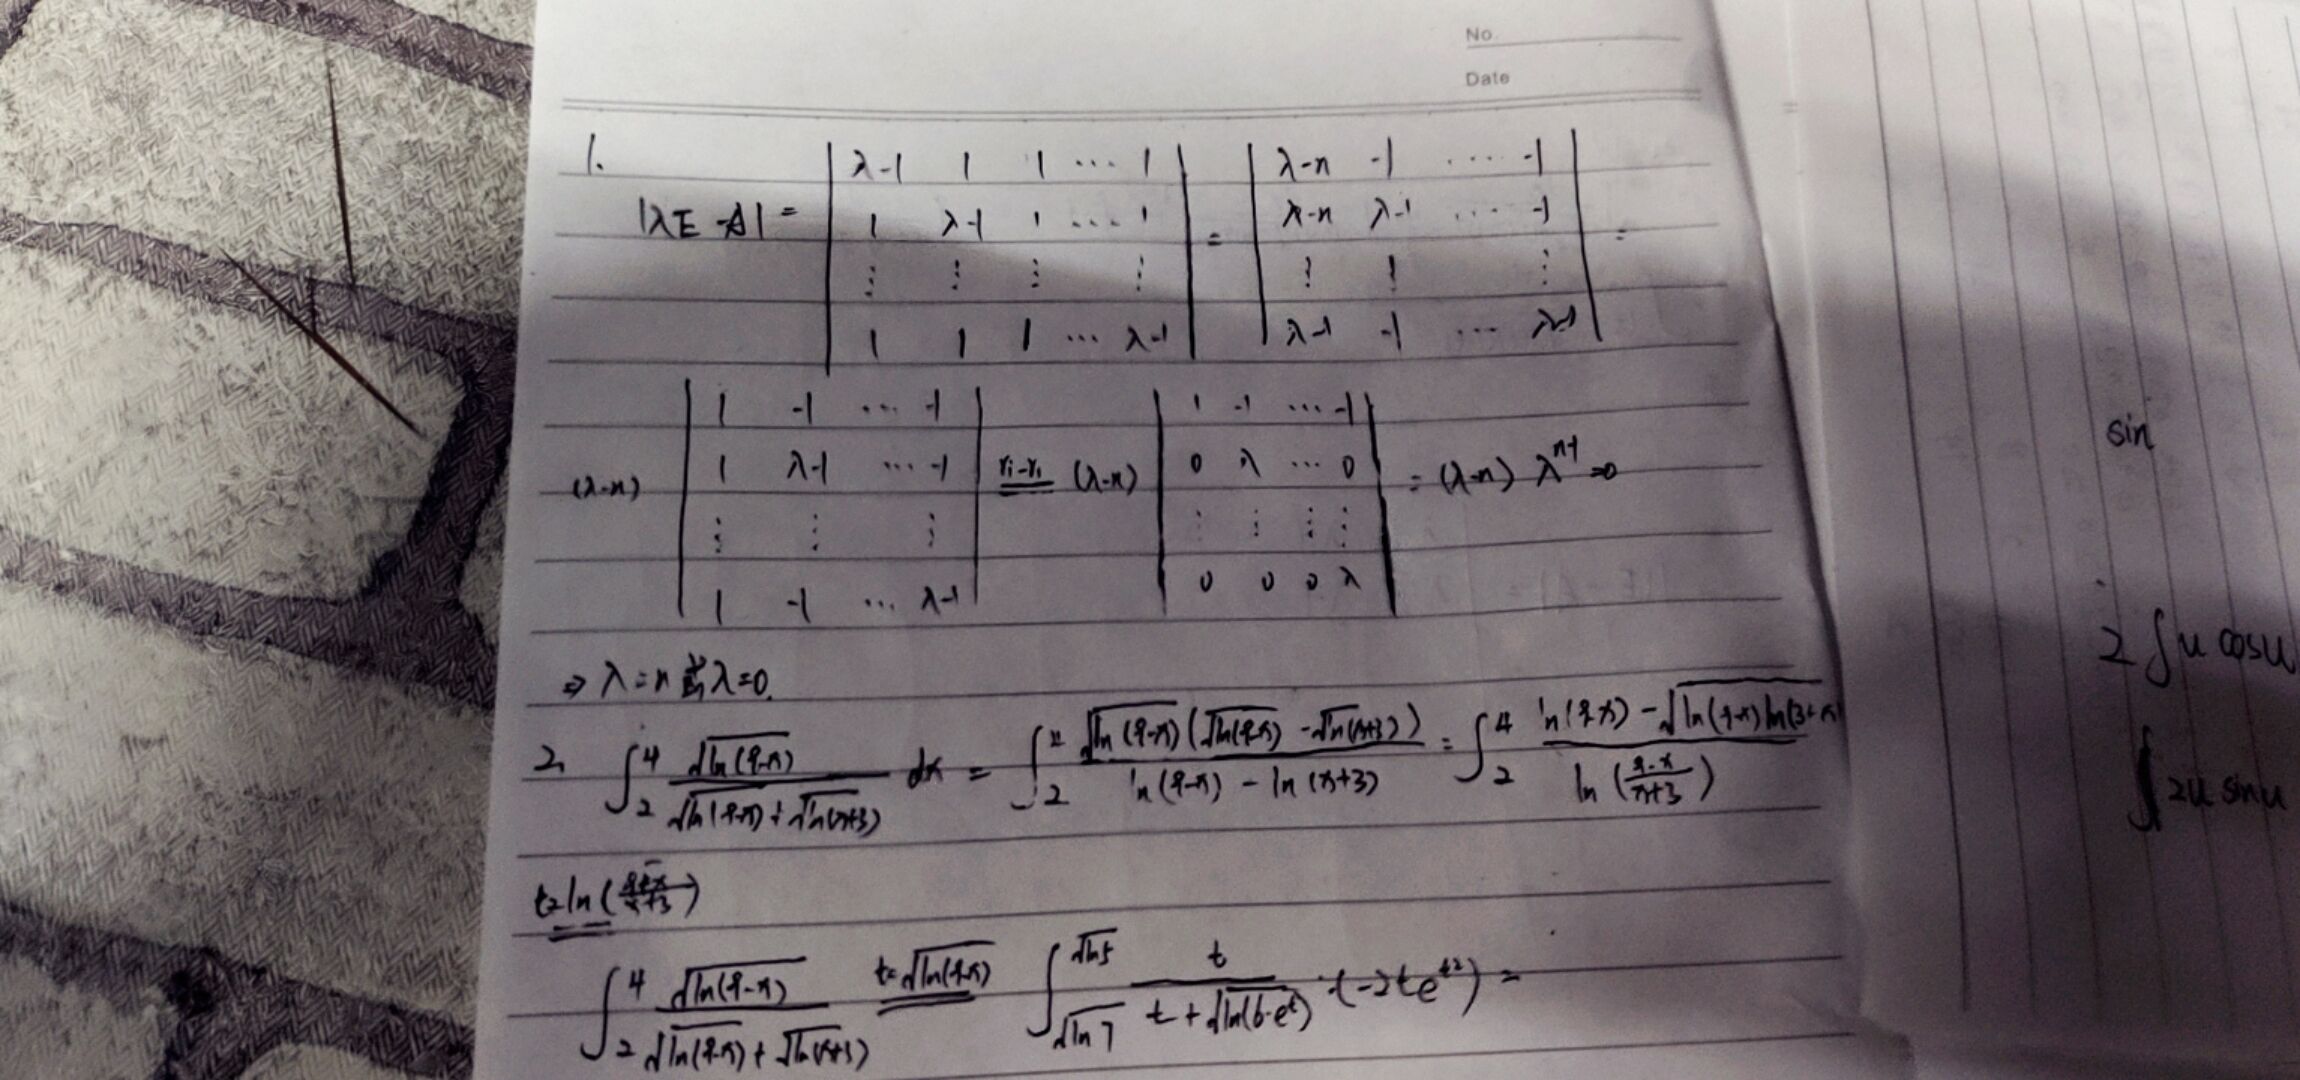 No.
Date
1.
|λE-A| = | λ-1 1 1 ⋯ 1 | = | λ-n -1 ⋯ -1 | =
| 1 λ-1 1 ⋯ 1 | | λ-n λ-1 ⋯ -1 |
| ⋮ ⋮ ⋮ ⋮ | | ⋮ ⋮ ⋮ |
| 1 1 1 ⋯ λ-1 | | λ-1 -1 ⋯ λ-1 |
(λ-n) | 1 -1 ⋯ -1 | ri-r1 (λ-n) | 1 -1 ⋯ -1 | = (λ-n) λ^{n-1} =0
| 1 λ-1 ⋯ -1 | | 0 λ ⋯ 0 |
| ⋮ ⋮ ⋮ | | ⋮ ⋮ ⋮ ⋮ |
| 1 -1 ⋯ λ-1 | | 0 0 0 λ |
⇒ λ=n 或 λ=0.
2. ∫_2^4 √ln(9-x) / (√ln(9-x) + √ln(x+3)) dx = ∫_2^4 √ln(9-x) (√ln(9-x) - √ln(x+3)) / (ln(9-x) - ln(x+3)) = ∫_2^4 (ln(9-x) - √ln(9-x)ln(3+x)) / ln((9-x)/(x+3))
t=ln((9-x)/(x+3))
∫_2^4 √ln(9-x) / (√ln(9-x) + √ln(x+3)) t=√ln(9-x) ∫_{√ln7}^{√ln5} t / (t+√ln(6-e^t)) ·(-2te^{t²}) =
sin
2∫u cosu
∫2u sinu